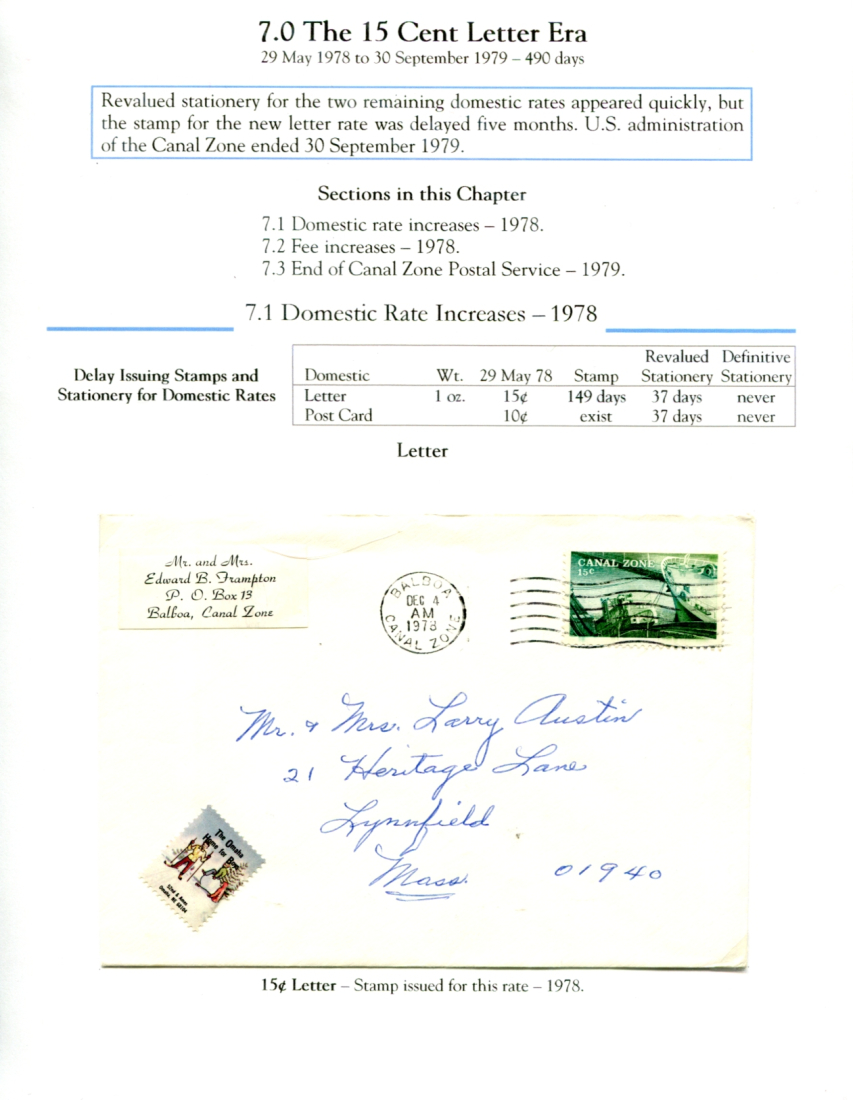 7.0 The 15 Cent Letter Era
29 May 1978 to 30 September 1979 – 490 days
Revalued stationery for the two remaining domestic rates appeared quickly, but
the stamp for the new letter rate was delayed five months. U.S. administration
of the Canal Zone ended 30 September 1979.
Sections in this Chapter
7.1 Domestic rate increases – 1978.
7.2 Fee increases – 1978.
7.3 End of Canal Zone Postal Service – 1979.
7.1 Domestic Rate Increases – 1978
Delay Issuing Stamps and
Stationery for Domestic Rates
Revalued Definitive
Domestic Wt. 29 May 78 Stamp Stationery Stationery
Letter 1 oz. 15¢ 149 days 37 days never
Post Card 10¢ exist 37 days never
Letter
Mr. and Mrs.
Edward B. Frampton
P. O. Box 13
Balboa, Canal Zone
BALBOA
DEC 4
AM
1978
CANAL ZONE
CANAL ZONE
15c
Mr. & Mrs. Larry Austin
21 Heritage Lane
Lynnfield
Mass. 01940
The Omaha
Home for Boys
15¢ Letter – Stamp issued for this rate – 1978.